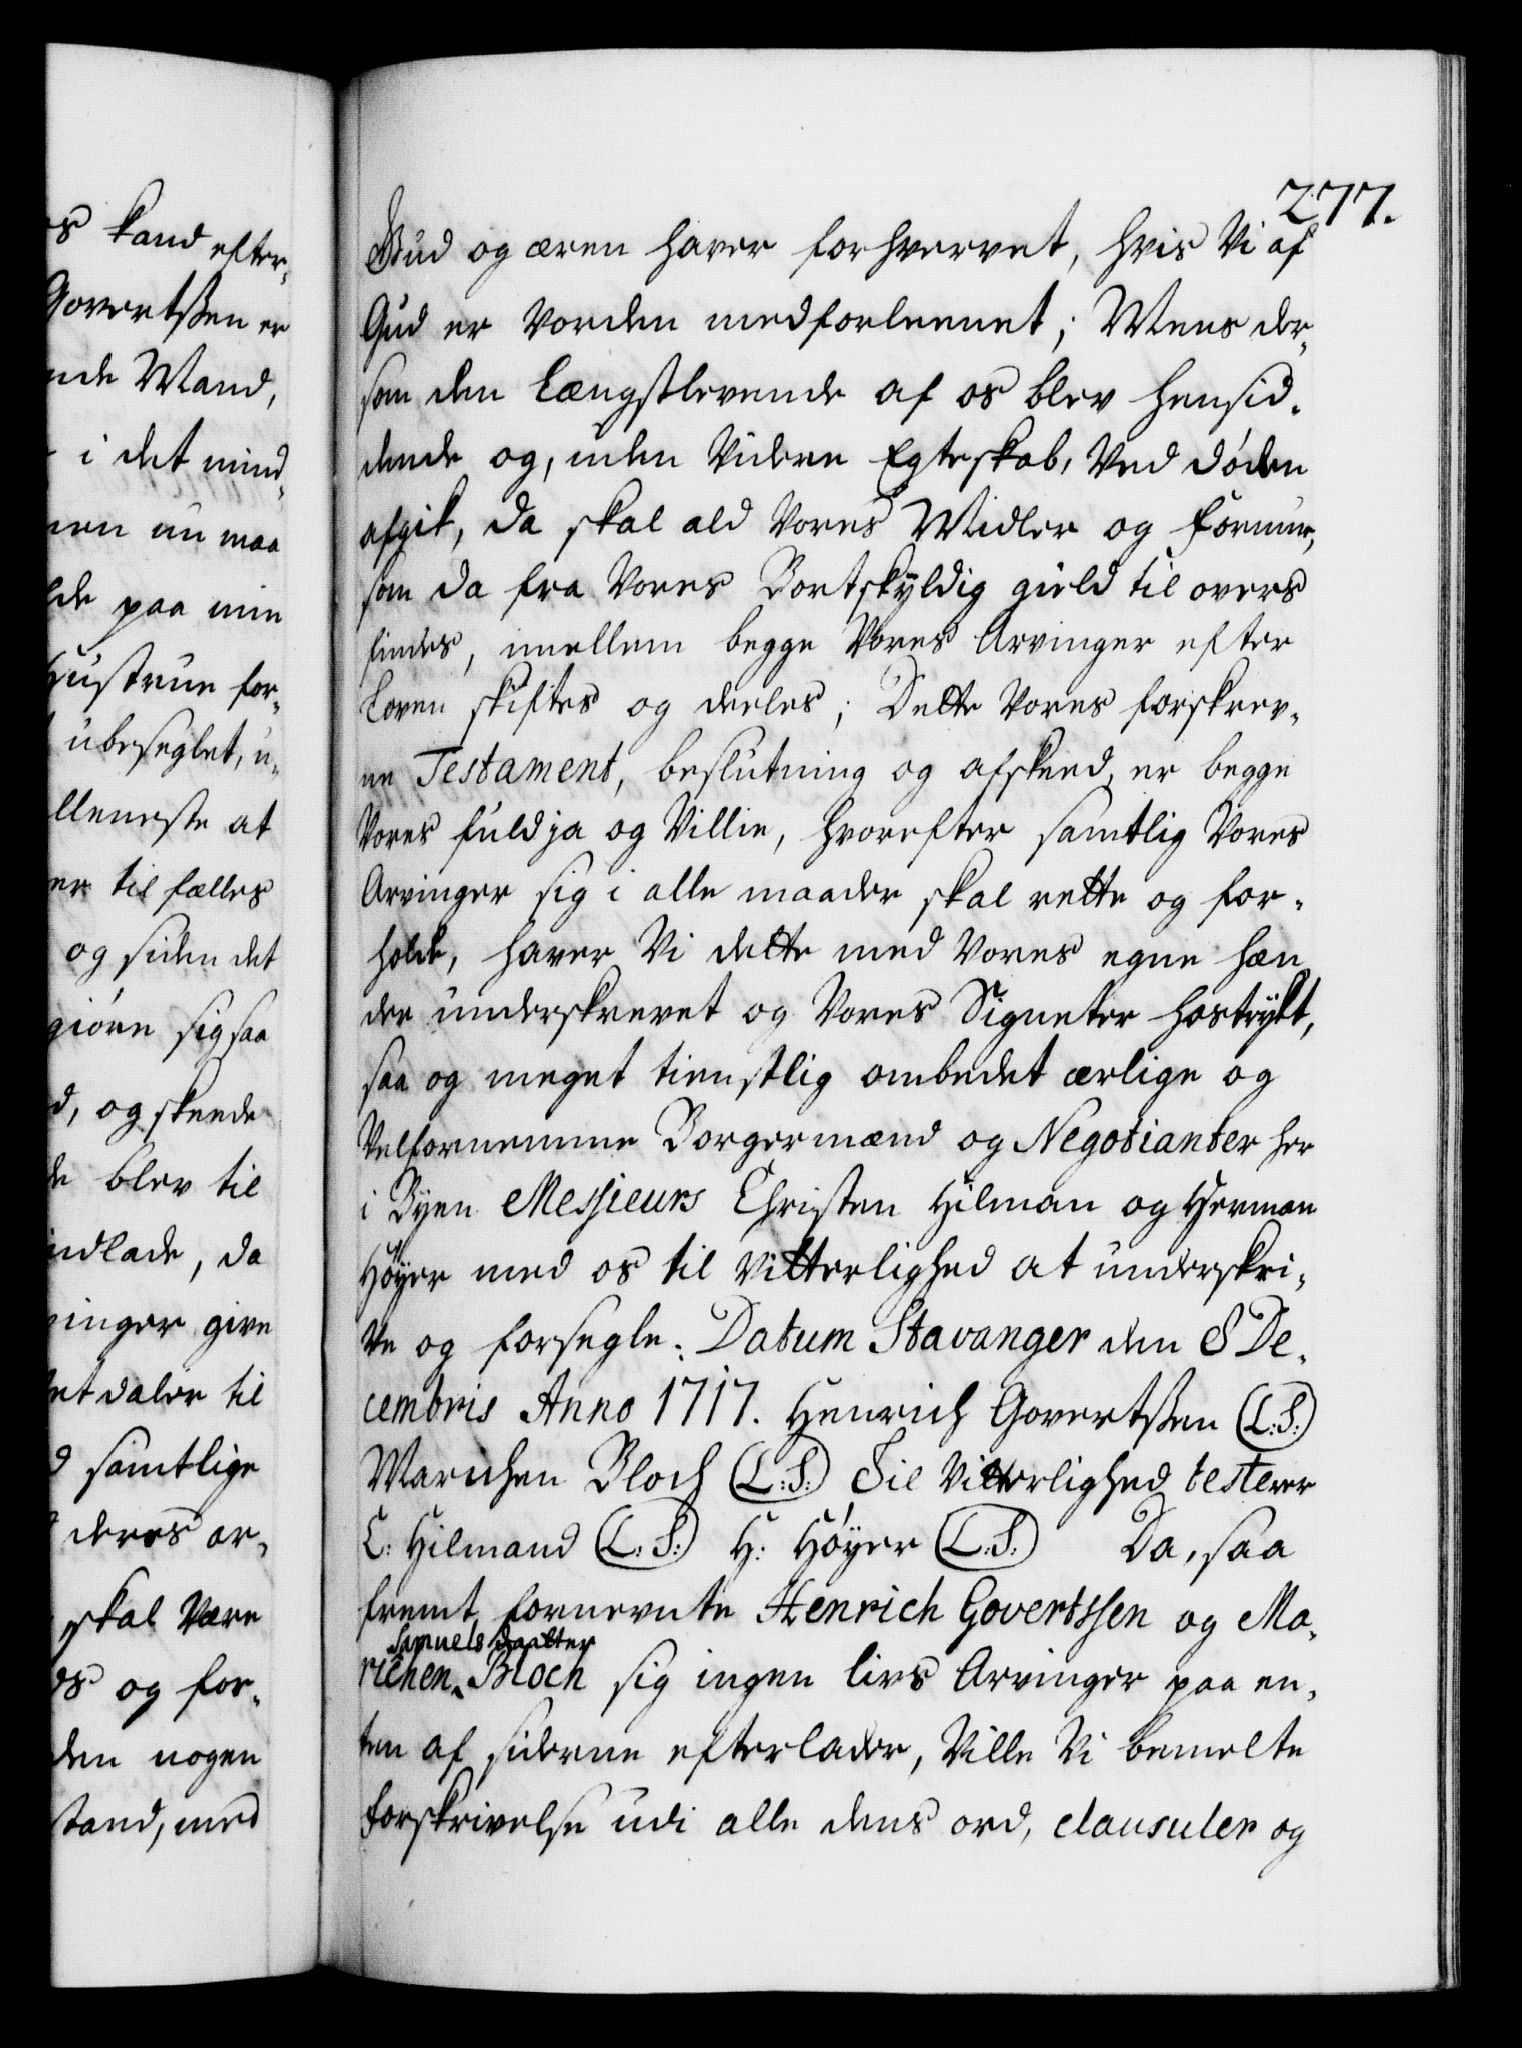 s kand efter-
Govertßen er
nde Mand,
i det mind-
nen nu maa
lde paa min
Hustrue for-
ubeseglet, u-
lleneste at
er til fælles
og siden det
giøre sig saa
d, og skeede
de blev til
indlade, da
vinger give
het daler til
d samtlige
deres ar-
skal Være
ds og for-
den nogen
stand, med
277.
Gud og æren haver forhvervet, hvis Vi af
Gud er Vorden medforleenet; Mens der-
som den Længstlevende af os blev hensid-
dende og, uden Videre Egteskab, Ved døden
afgik, da skal ald Vores Midler og formue,
som da fra Vores Bortskyldig gield til overs
findes, imellem begge Vores Arvinger efter
Loven skiftes og deeles; Dette Vores forskrev-
ne Testament, beslutning og afskeed, er begge
Vores fuld ja og Villie, hvorefter samtlig Vores
Arvinger sig i alle maader skal rette og for-
holde, haver Vi dette med Vores egne hæn
der underskrevet og Vores Signeter hostrykt,
saa og meget tienstlig ombedet ærlige og
Velfornemme Borgermænd og Negotianter her
i Byen Messieurs Christen Hilman og Herman
Høyer med os til Vitterlighed at underskri-
ve og forsegle. Datum Stavanger den 8 De-
cembris Anno 1717. Henrich Govertßen (L:S:)
Marichen Bloch (L:S:) Til Vitterlighed testerer
C: Hilmand (L:S:) H: Høyer (L:S:) Da, saa
fremt fornevnte Henrich Govertssen og Ma-
Samuels daatter
richen Bloch sig ingen livs Arvinger paa en-
ten af siderne efterlader, Ville Vi bemelte
forskrivelse udi alle dens ord, clausuler og